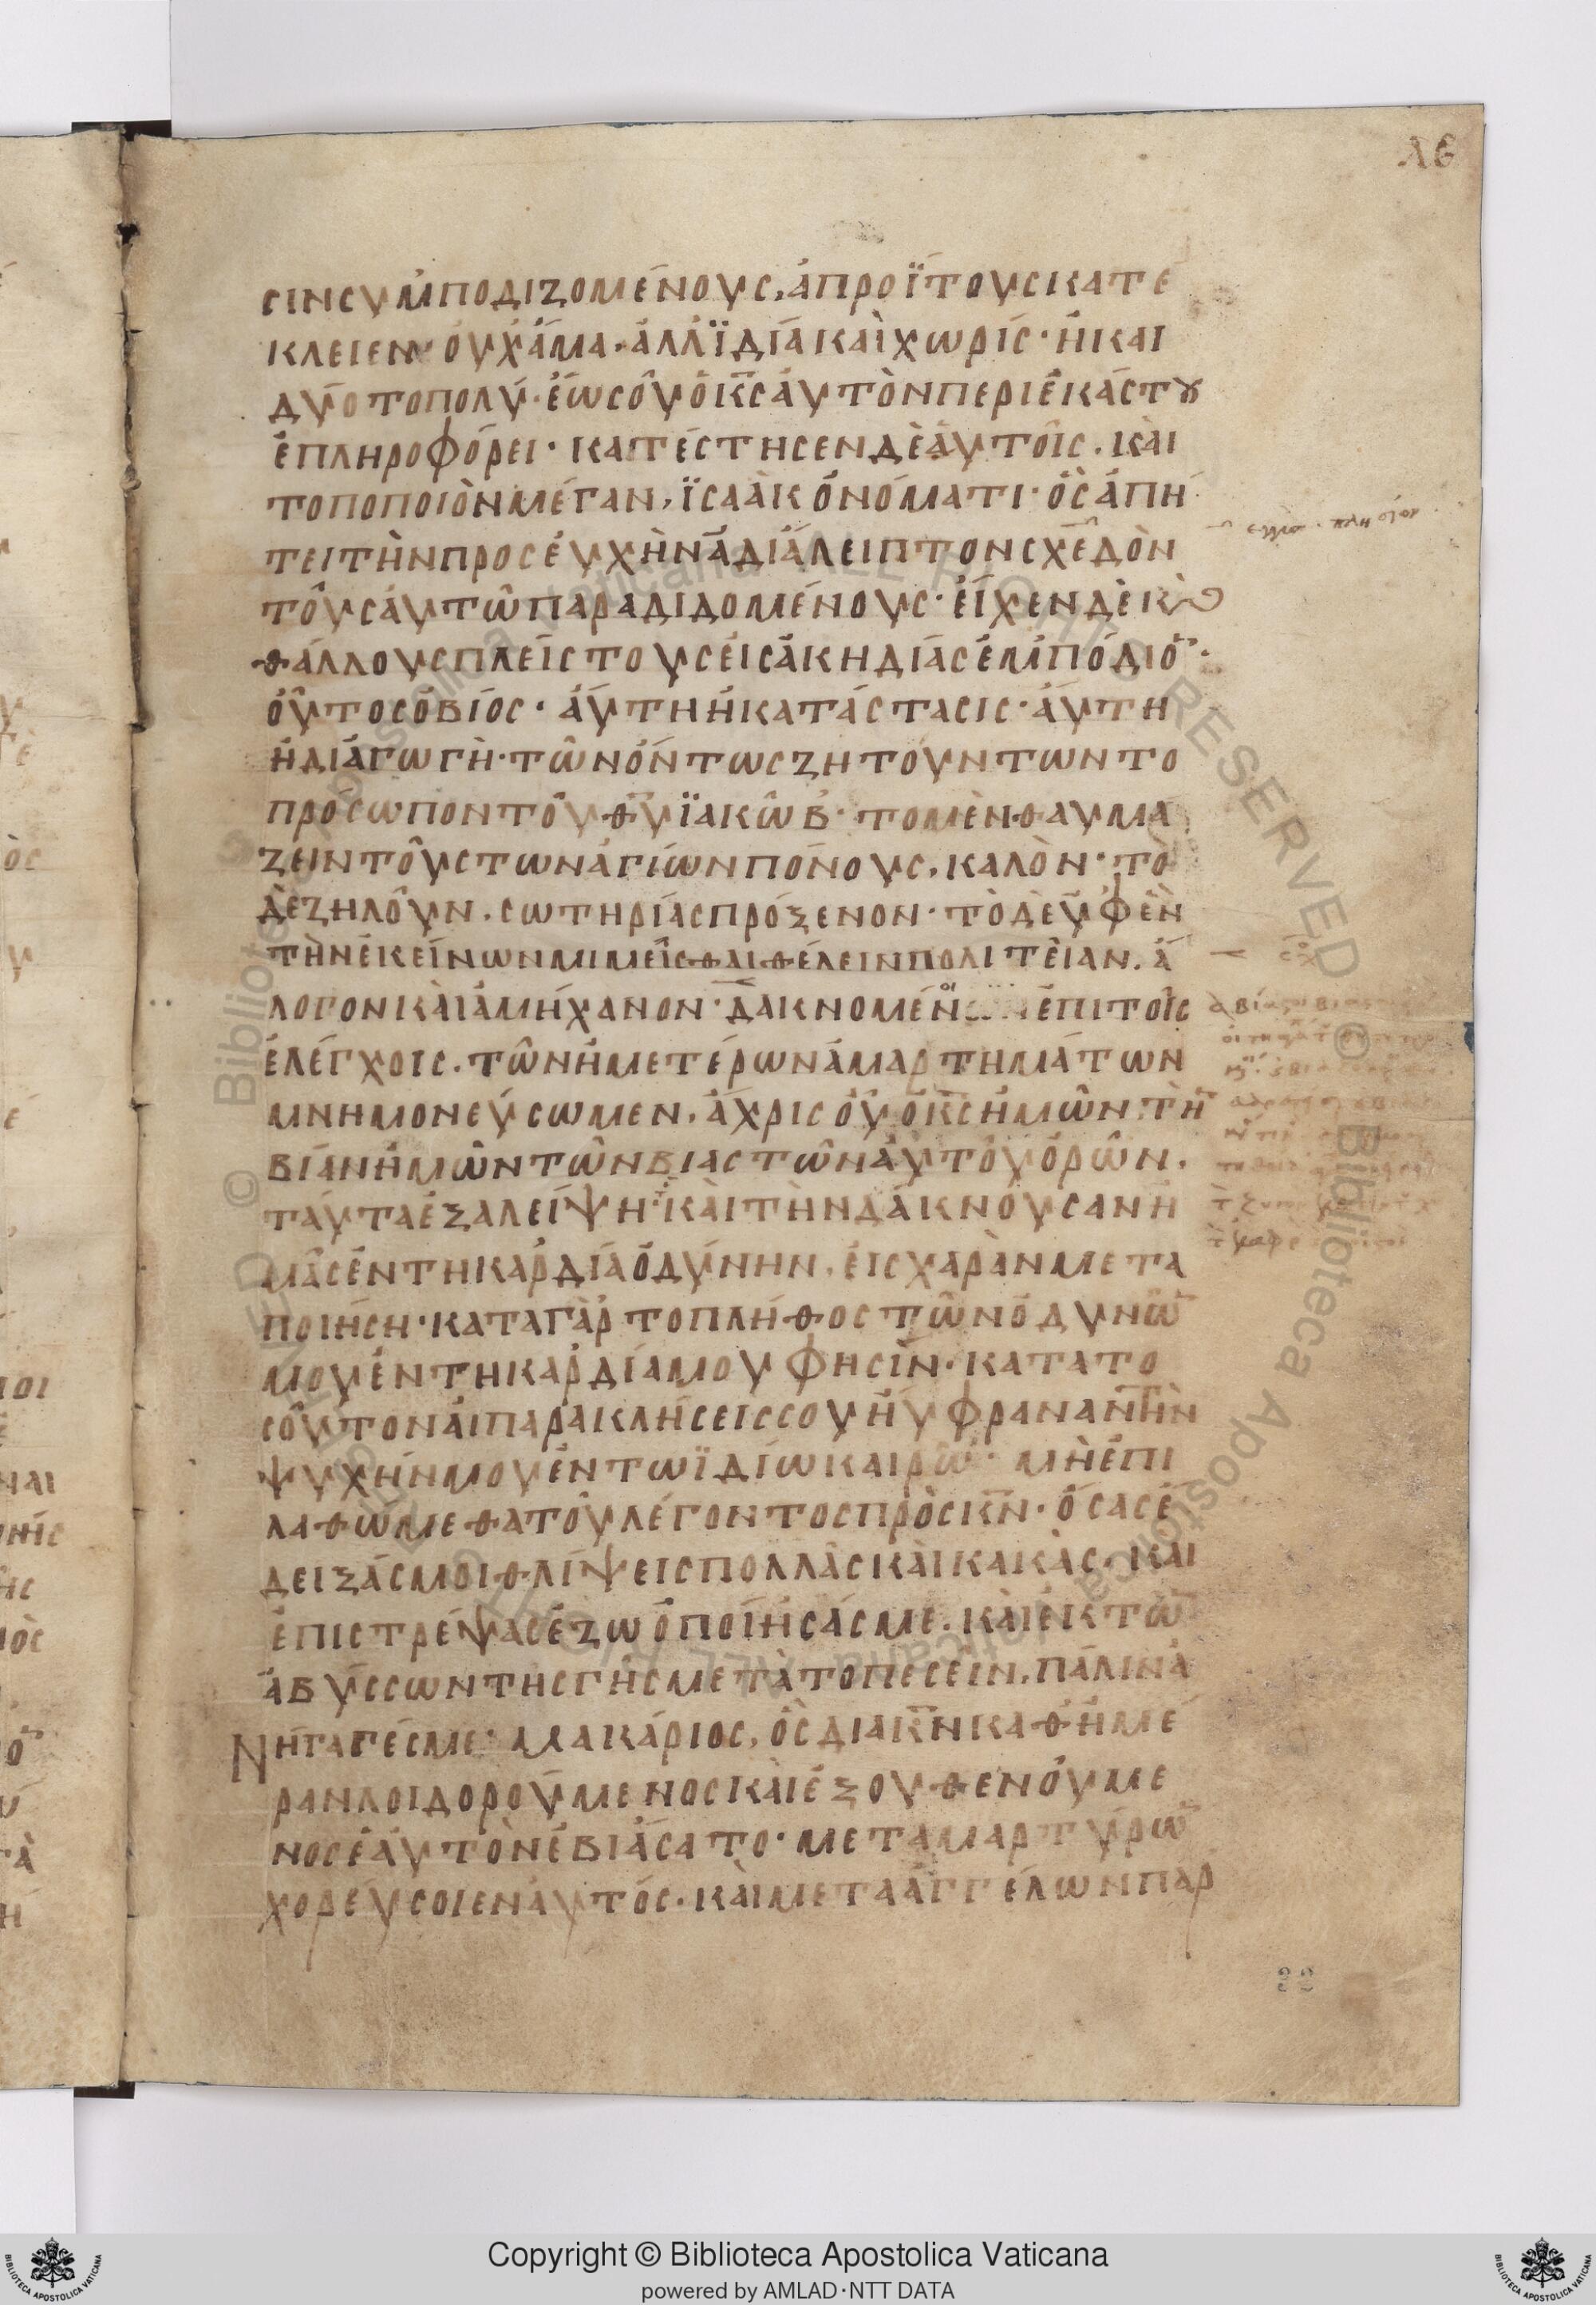 λε
σινσυμποδιζομένουσ, ἀπροΐτουσκατέ
κλειεν· ὀυχἅμα· ἀλλϊδίακαὶχωρίσ· ἢκαι
δύοτοπολύ· ἕωσὀῦὁκ̅σ̅ἀυτὸνπεριἑκάστȣ
ἐπληροφόρει· κατέστησενδὲἀυτοῖσ. κὰι
τοποποιὸνμέγαν, ϊσαὰκὀνόματι· ὃσἀπῄ
τειτὴνπροσἐυχὴνἀδιάλειπτονσχεδὸν
τοὺσἀυτῶπαραδιδομένουσ· ἐίχενδὲκ̀
θάλλουσπλείστουσἐισἀκηδίασἐμπόδιο̅·
ὀῦτοσὁβίοσ· ἁύτηἡκατάστασισ· ἁύτη
ἡδιάγωγὴ· τῶνὄντωσζητούντωντο
πρόσωπαντοῦθ̅υ̅ϊακὼβ· τομὲνθαυμά
ζεῖντοὺστωνἁγίωνπόνουσ, καλὸν· τὸ
δὲζηλοῦν, σωτηρίασπρόξενον· τὸδὲὑφὲν
τὴνἐκείνωνμιμεῖσθαιθέλεινπολιτείαν, ἄ
λογονκὰιἀμήχανον· δακνομένοι ἐπιτοῖσ
ἐλέγχοισ, τῶνἡμετέρωνἁμαρτημάτων
μνημονεύσωμεν, ἄχρισὀῦὁκ̅σ̅ἡμῶντὴ̅
βίανἡμῶντῶνβιαστῶναὐτοῦὁρῶν,
ταύταἐξαλείψη· κὰιτὴνδάκνουσανἡ
μᾶσἐντηκαρδίαὀδύνην, ἐισχαρὰνμετα
ποιήση· καταγὰρτοπλῆθοστῶνὀδυνῶ̅
μουἐντηκαρδίαμουφησίν· κατατο
σοῦτοναἱπαρακλήσεισσουἠύφραναντὴν
ψυχήνμουἐντωϊδίωκαιρῶ· μὴἐπι
λαθώμεθατοῦλέγοντοσπρὸσκ̅ν̅· ὅσασἔ
δειξάσμοιθλίψεισπολλὰσκὰικακὰσ, κὰι
ἐπιστρέψασἐζωοποίησάσμε, κὰιἐκτῶ̅
ἀβύσσωντῆσγῆσμετὰτοπεσεῖν, πάλινἀ
νήγαγέσμε· Μακάριοσ, ὃσδιακ̅ν̅καθημέ
ρανλοιδορούμενοσκὰιἐξουθενούμε
νοσἑαυτὸνἐβιάσατο· μεταμαρτύρω̅
χορεύσοιἐναυτόσ, κὰιμεταἀγγέλωνπαρ
Copyright © Biblioteca Apostolica Vaticana
powered by AMLAD·NTT DATA